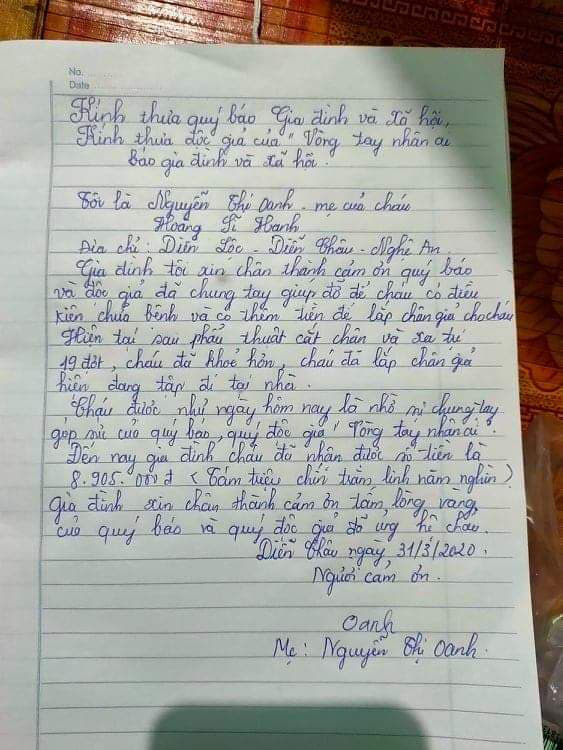 No.
Date
Kính thưa quý báo Gia đình và Xã hội,
Kính thưa độc giả của "Vòng tay nhân ai
báo gia đình và xã hội.
Tôi là Nguyễn Thị Oanh - mẹ của cháu
Hoàng Sĩ Hanh
Địa chỉ: Diễn Lộc - Diễn Châu - Nghệ An
Gia đình tôi xin chân thành cảm ơn quý báo
và độc giả đã chung tay giúp đỡ để cháu có điều
kiện chữa bệnh và có thêm tiền để lắp chân giả cho cháu
Hiện tại sau phẫu thuật cắt chân và xạ trị
19 đợt, cháu đã khoẻ hơn, cháu đã lắp chân giả
hiện đang tập đi tại nhà.
Cháu được như ngày hôm nay là nhờ sự chung tay
góp sức của quý báo, quý độc giả "Vòng tay nhân ái".
Đến nay gia đình cháu đã nhận được số tiền là
8.905.000đ (Tám triệu chín trăm linh năm nghìn)
gia đình xin chân thành cảm ơn tấm lòng vàng
của quý báo và quý độc giả đã ủng hộ cháu.
Diễn Châu ngày 31/3/2020.
Người cảm ơn.
Oanh
Mẹ: Nguyễn Thị Oanh.